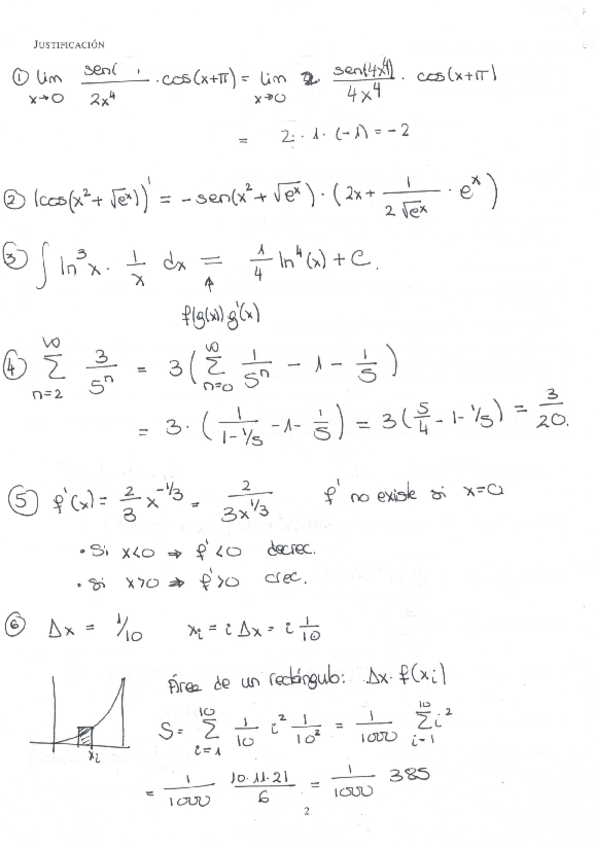 JUSTIFICACIÓN
① lim x→0 sen( / 2x⁴ · cos(x+π) = lim x→0 2 sen(4x⁴) / 4x⁴ · cos(x+π)
= 2 · 1 · (-1) = -2
② (cos(x² + √eˣ))' = -sen(x² + √eˣ) · (2x + 1 / 2√eˣ · eˣ)
③ ∫ ln³x · 1/x dx = 1/4 ln⁴(x) + C.
↑
f(g(x)) g'(x)
④ ∞ Σ n=2 3/5ⁿ = 3 ( ∞ Σ n=0 1/5ⁿ - 1 - 1/5 )
= 3 · ( 1 / 1-1/5 - 1 - 1/5 ) = 3 ( 5/4 - 1 - 1/5 ) = 3/20.
⑤ f'(x) = 2/3 x^-1/3 = 2 / 3x^1/3 f' no existe si x=0
• Si x<0 ⇒ f'<0 decrec.
• Si x>0 ⇒ f'>0 crec.
⑥ Δx = 1/10 xᵢ = i Δx = i 1/10
Área de un rectángulo: Δx · f(xᵢ)
S = 10 Σ i=1 1/10 i² 1/10² = 1/1000 10 Σ i=1 i²
xᵢ
= 1/1000 10·11·21 / 6 = 1/1000 385
2